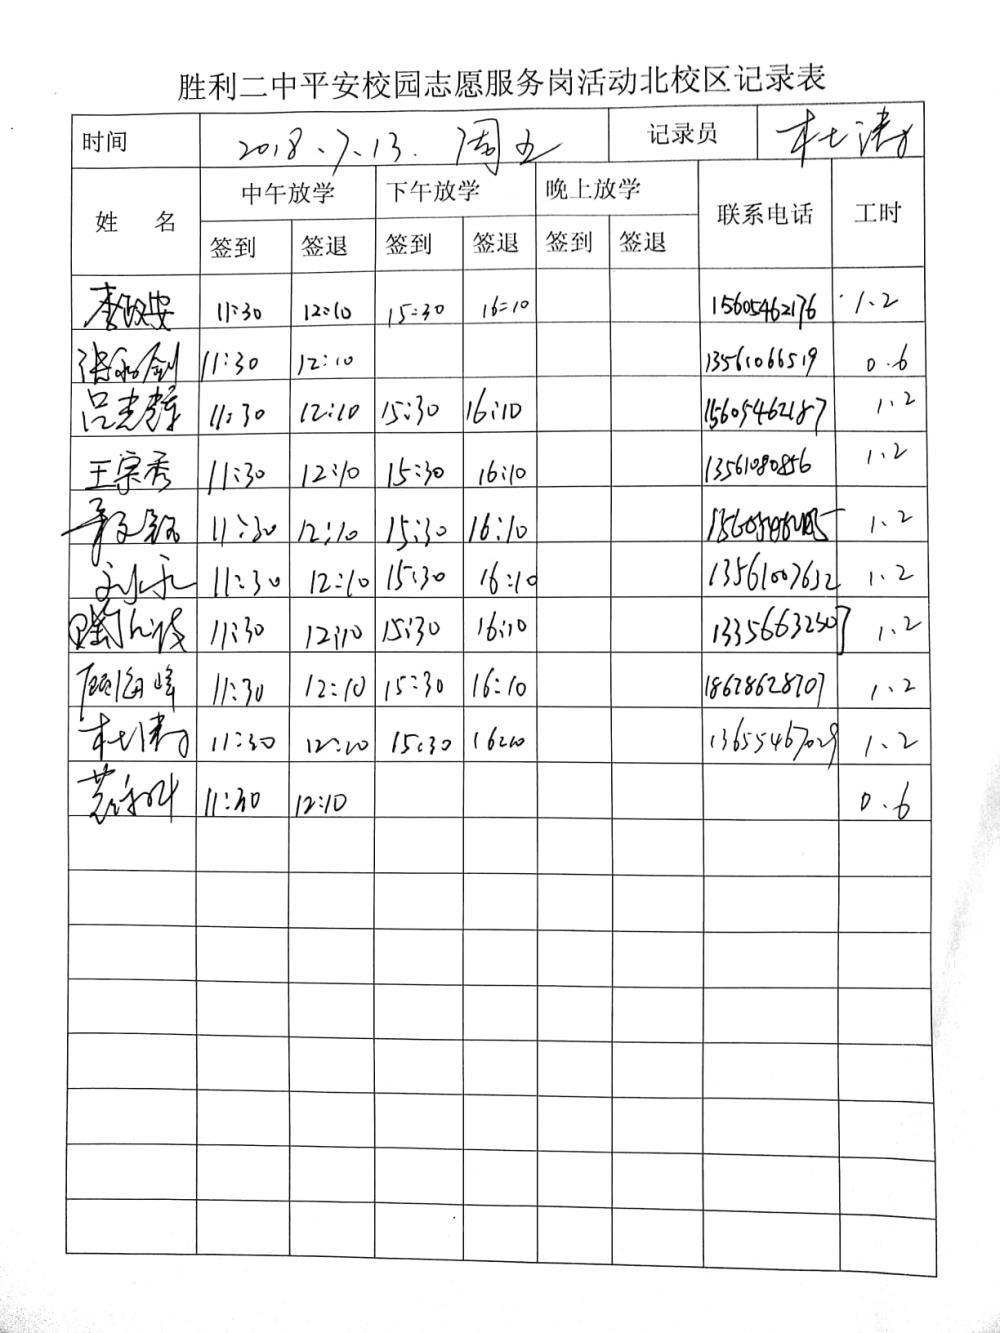 胜利二中平安校园志愿服务岗活动北校区记录表
时间 2018.7.13. 周五 记录员 杜涛
姓 名 中午放学 下午放学 晚上放学 联系电话 工时
签到 签退 签到 签退 签到 签退
李政安 11:30 12:10 15:30 16:10 15605462176 1.2
11:30 12:10 13561066519 0.6
吕志 11:30 12:10 15:30 16:10 15605462187 1.2
王宗秀 11:30 12:10 15:30 16:10 13561080856 1.2
11:30 12:10 15:30 16:10 1.2
刘永 11:30 12:10 15:30 16:10 13561007632 1.2
11:30 12:10 15:30 16:10 13356632507 1.2
顾海峰 11:30 12:10 15:30 16:10 18678628707 1.2
杜涛 11:30 12:10 15:30 16:10 13655467029 1.2
11:30 12:10 0.6